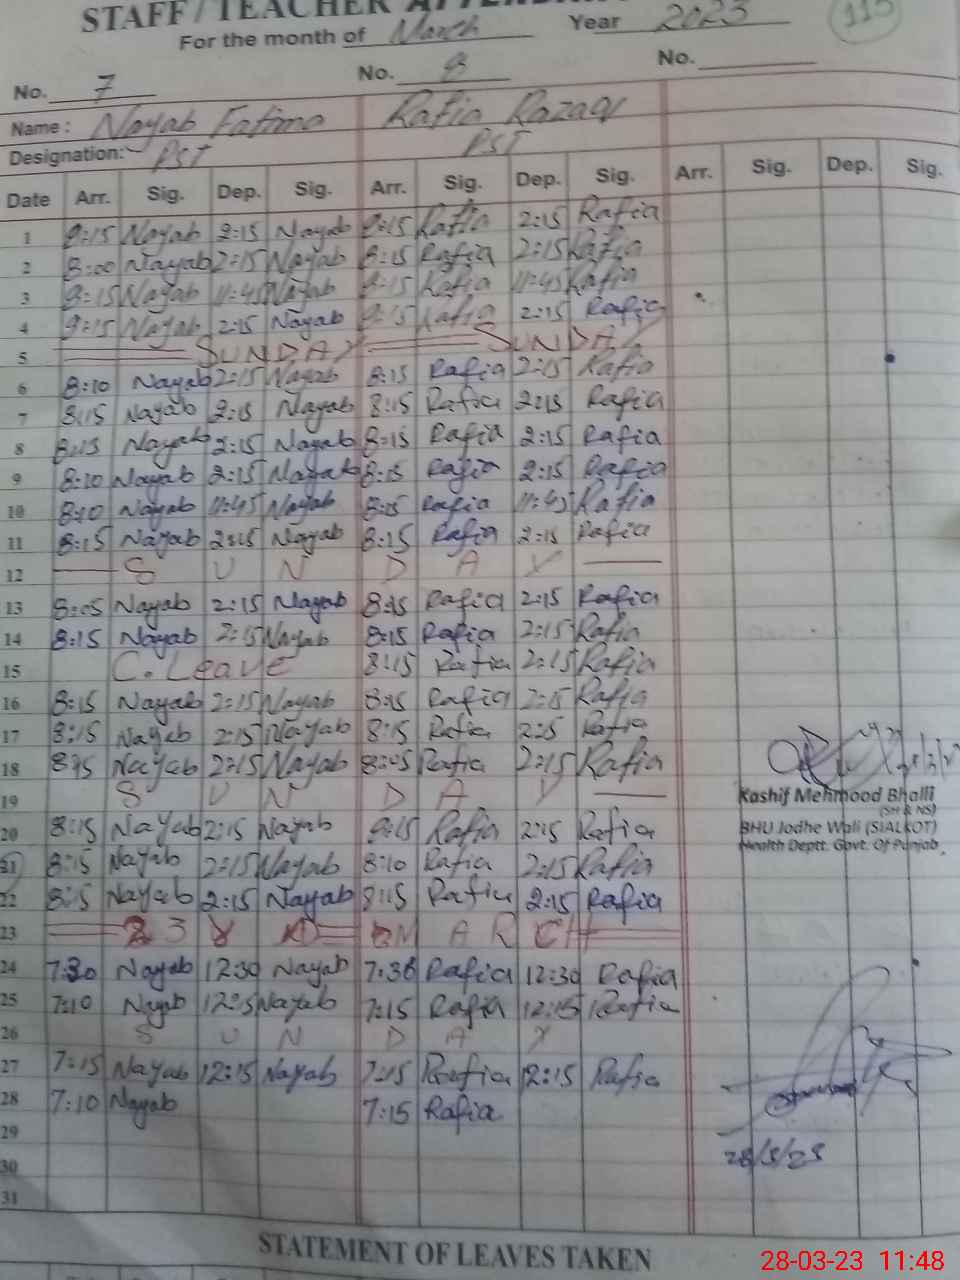 STAFF/TEACHER
115
For the month of March Year 2023
No. 7 No. 8 No.
Name: Nayab Fatima Rafia Razaq
Designation: PST PST
Date Arr. Sig. Dep. Sig. Arr. Sig. Dep. Sig. Arr. Sig. Dep. Sig.
1 8:15 Nayab 2:15 Nayab 8:15 Rafia 2:15 Rafia
2 8:00 Nayab 2:15 Nayab 8:15 Rafia 2:15 Rafia
3 8:15 Nayab 11:45 Nayab 8:15 Rafia 11:45 Rafia
4 8:15 Nayab 2:15 Nayab 8:15 Rafia 2:15 Rafia
5 SUNDAY SUNDAY
6 8:10 Nayab 2:15 Nayab 8:15 Rafia 2:15 Rafia
7 8:15 Nayab 2:15 Nayab 8:15 Rafia 2:15 Rafia
8 8:15 Nayab 2:15 Nayab 8:15 Rafia 2:15 Rafia
9 8:10 Nayab 2:15 Nayab 8:15 Rafia 2:15 Rafia
10 8:10 Nayab 11:45 Nayab 8:15 Rafia 11:45 Rafia
11 8:15 Nayab 2:15 Nayab 8:15 Rafia 2:15 Rafia
12 S U N D A Y
13 8:05 Nayab 2:15 Nayab 8:15 Rafia 2:15 Rafia
14 8:15 Nayab 2:15 Nayab 8:15 Rafia 2:15 Rafia
15 C. Leave 8:15 Rafia 2:15 Rafia
16 8:15 Nayab 2:15 Nayab 8:15 Rafia 2:15 Rafia
17 8:15 Nayab 2:15 Nayab 8:15 Rafia 2:15 Rafia
18 8:15 Nayab 2:15 Nayab 8:05 Rafia 2:15 Rafia
19 S U N D A Y
Kashif Mehmood Bhalli
(SH & NS)
20 8:15 Nayab 2:15 Nayab 8:15 Rafia 2:15 Rafia
BHU Jodhe Wali (SIALKOT)
Health Deptt. Govt. Of Punjab.
21 8:15 Nayab 2:15 Nayab 8:10 Rafia 2:15 Rafia
22 8:15 Nayab 2:15 Nayab 8:15 Rafia 2:15 Rafia
23 23 M A R C H
24 7:30 Nayab 12:30 Nayab 7:30 Rafia 12:30 Rafia
25 7:10 Nayab 12:15 Nayab 7:15 Rafia 12:15 Rafia
26 S U N D A Y
27 7:15 Nayab 12:15 Nayab 7:15 Rafia 12:15 Rafia
28 7:10 Nayab 7:15 Rafia
29
28/3/23
30
31
STATEMENT OF LEAVES TAKEN
28-03-23 11:48